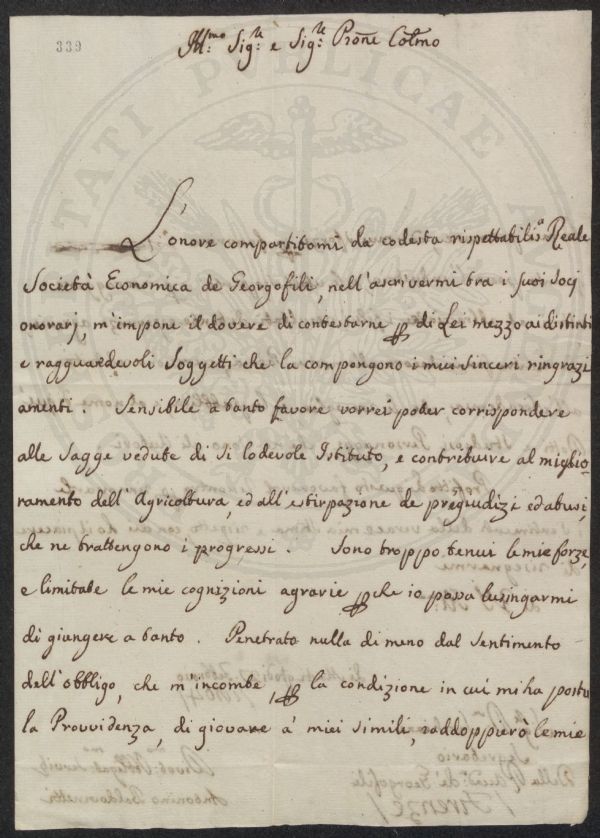 339
Ill:mo Sig:re e Sig:re Prõne Col:mo
L'onore compartitomi da codesta rispettabilis:a Reale
Società Economica de Georgofili, nell'ascrivermi tra i suoi Socj
onorarj, m'impone il dovere di contestarne p di Lei mezzo ai distinti
e ragguardevoli Soggetti che la compongono i miei sinceri ringrazi
amenti. Sensibile a tanto favore vorrei poter corrispondere
alle sagge vedute di sì lodevole Istituto, e contribuire al miglio-
ramento dell'Agricoltura, ed all'estirpazione de pregiudizj ed abusi,
che ne trattengono i progressi. Sono troppo tenui le mie forze,
e limitate le mie cognizioni agrarie pche io possa lusingarmi
di giungere a tanto. Penetrato nulla di meno dal sentimento
dell'obbligo, che m'incombe, p la condizione in cui mi ha posto
la Provvidenza, di giovare a' miei simili, raddoppierò le mie
TATI PUBLICAE